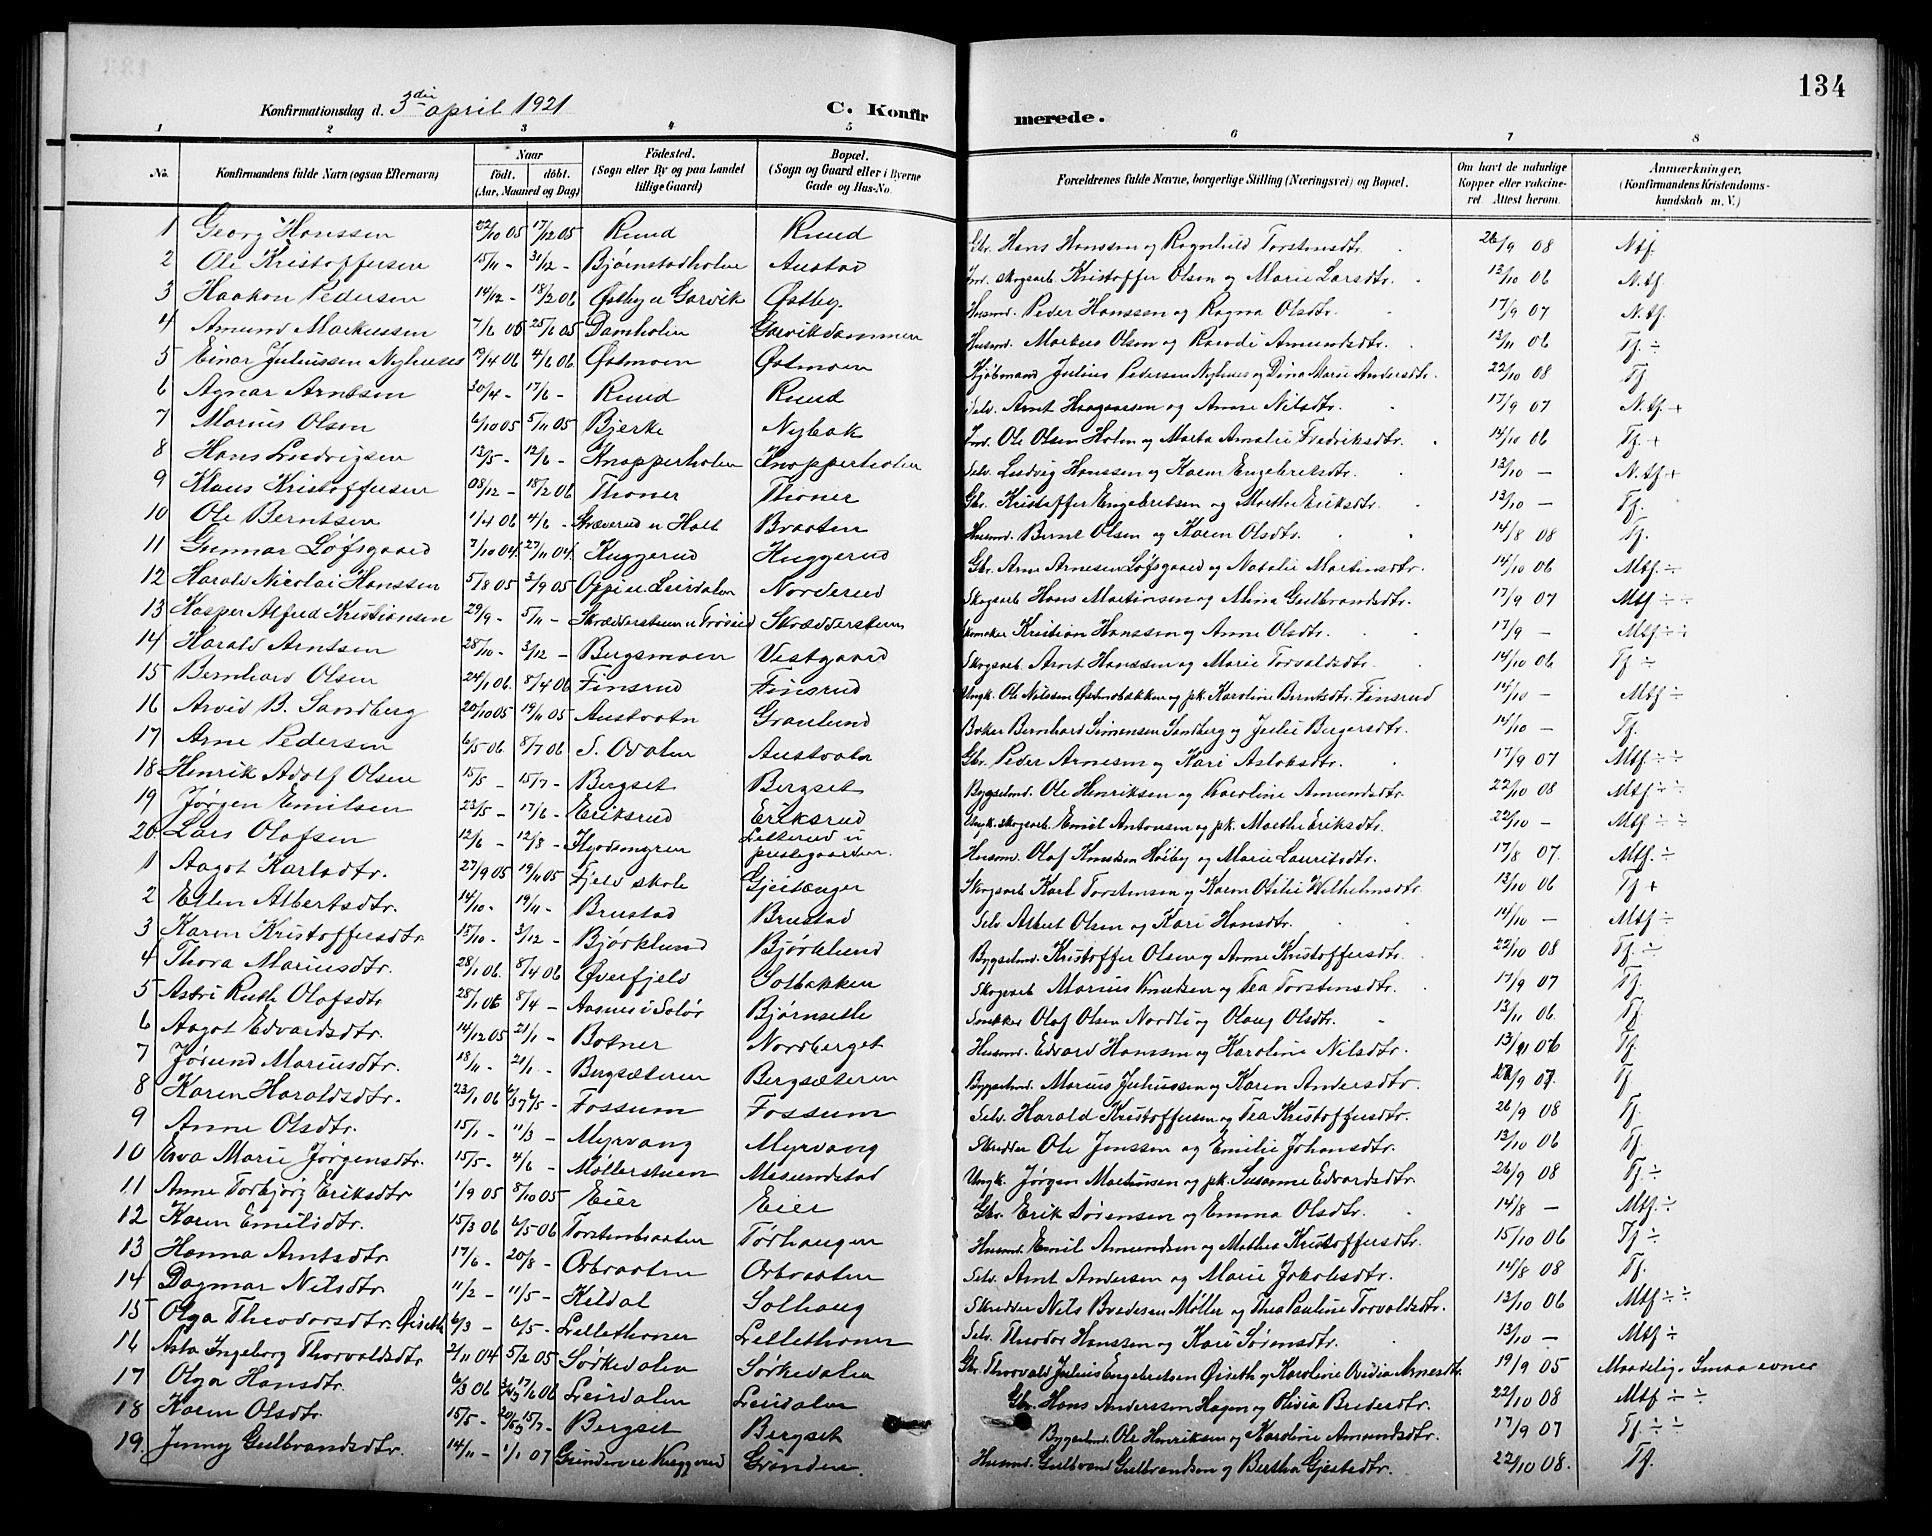 134
Konfirmationsdag d. 3die april 1921 C. Konfirmerede.
1 2 3 4 5 6 7 8
No. Konfirmandens fulde Navn (ogsaa Efternavn) Naar født. døbt. (Aar, Maaned og Dag) Fødested. (Sogn eller By og paa Landet tillige Gaard) Bopæl. (Sogn og Gaard eller i Byerne Gade og Hus-No. Forældrenes fulde Navne, borgerlige Stilling (Næringsvei) og Bopæl. Om havt de naturlige Kopper eller vakcineret. Attest herom. Anmærkninger, (Konfirmandens Kristendomskundskab m. V.)
1 Georg Hanssen 22/10 05 17/12 05 Ruud Ruud Gbr. Hans Hanssen og Ragnhild Torstensdtr. 26/9 08 Ntf.
2 Ole Kristoffersen 15/11 - 31/12 - Bjørnstadholen Austad Ind. skogsarb. Kristoffer Olsen og Marie Larsdtr. 12/10 06 N.tf.
3 Haakon Pedersen 14/12 - 18/2 06 Østby u Garvik Østby Husmd. Peder Hanssen og Ragna Olsdtr. 17/9 07 N.tf.
4 Amund Markussen 7/6 05 25/6 05 Damholen Garvikdammen Husmd. Markus Olsen og Randi Amundsdtr. 13/11 06 Tf. ÷
5 Einar Juliussen Nyhuses 19/4 06 4/6 06 Østmoen Østmoen Kjøbmand Julius Pedersen Nyhuses og Dina Marie Andersdtr. 22/10 08 Tf.
6 Agnar Arntsen 30/4 - 17/6 - Ruud Ruud Selv. Arnt Haagaasen og Anne Nilsdtr. 17/9 07 N.tf. +
7 Marius Olsen 6/10 05 5/11 05 Bjerke Nybak Ind. Ole Olsen Holm og Marta Amalie Fredriksdtr. 14/10 06 Tf. +
8 Hans Ludvigsen 12/5 - 12/6 - Knapperholen Knapperholen Selv. Ludvig Hanssen og Karen Engebretsdtr. 13/10 — N.tf +
9 Klaus Kristoffersen 08/12 - 18/2 06 Thoner Thoner Gbr. Kristoffer Engebretsen og Marthe Eriksdtr. 13/10 — Tf.
10 Ole Berntsen 1/4 06 4/6 - Skræverud u Holt Braaten Husmd. Bernt Olsen og Karen Olsdtr. 14/8 08 Tf.
11 Gunnar Løfsgaard 7/10 04 27/11 04 Kuggerud Kuggerud Gbr. Arne Arnesen Løfsgaard og Natalie Martinsdtr. 14/10 06 Mtf. ÷
12 Harald Nicolai Hanssen 5/8 05 3/9 05 Oppi u Leirdalen Norderud Skogsarb Hans Martinsen og Mina Gulbrandsdtr. 17/9 07 Mtf ÷ ÷
13 Kasper Alfred Kristiansen 29/9 - 5/11 - Skrædderstuen u Trøsied Skrædderstuen Skomaker Kristian Hanssen og Anne Olsdtr. 17/9 — Mtf ÷ ÷
14 Harald Arntsen 28/10 - 3/12 - Bergsmoen Vestgaard Skogsarb. Arnt Hanssen og Marie Torvaldsdtr. 14/10 06 Tf. ÷
15 Bernhard Olsen 24/1 06 8/4 06 Finsrud Finsrud Ungk. Ole Nilssen Østmobakken og pk. Karoline Berntsdtr. Finsrud 14/10 — Mtf ÷
16 Arvid B. Sandberg 20/10 05 19/11 05 Austvatn Granlund Baker Bernhard Simensen Sandberg og Julie Birgersdtr. 14/10 — Tf.
17 Arne Pedersen 6/5 06 8/7 06 S. Odalen Austvatn Gbr. Peder Arnesen og Kari Aslaksdtr. 17/9 07 Mtf ÷ ÷
18 Henrik Adolf Olsen 15/5 - 15/7 - Bergset Bergset Bygselmd. Ole Henriksen og Karoline Amundsdtr. 22/10 08 Mtf ÷ ÷
19 Jørgen Emilsen 23/5 - 17/6 - Eriksrud Eriksrud Ungk. skogsarb. Emil Antonsen og pk. Marthe Eriksdtr. 22/10 - Mtf ÷ ÷
20 Lars Olafsen 12/6 - 12/8 - Hjodsmyren Letterud u/ prestegaarden. Husmd. Olaf Knutsen Høiby og Marie Lauritsdtr. 17/8 07 Mtf. ÷
1 Aagot Karlsdtr. 27/9 05 19/11 05 Fjeld skole Gjeitanger Skogsarb Karl Torstensen og Karen Otilie Wilhelmsdtr. 13/10 06 Tf +
2 Ellen Albertsdtr. 14/10 - 19/11 - Brustad Brustad Selv. Albert Olsen og Kari Hansdtr. 14/10 — Mtf ÷
3 Karen Kristoffersdtr 15/10 - 3/12 - Bjørklund Bjørklund Bygselmd. Kristoffer Olsen og Anne Kristoffersdtr. 22/10 08 Tf. ÷
4 Thora Mariusdtr. 28/1 06 8/4 06 Øverfjeld Solbakken Skogsarb Marius Knutsen og Tea Torstensdtr. 17/9 07 Tf.
5 Astri Ruth Olafsdtr 28/1 06 8/4 — Aasnes i Solør Bjørnsetle Snekker Olaf Olsen Nordli og Olaug Olsdtr. 13/11 06. Tf.
6 Aagot Edvardsdtr. 14/12 05 21/1 - Botner Nordberget Husmd. Edvard Hanssen og Karoline Nilsdtr. 13/11 06 Tf
7 Jørund Mariusdtr. 18/11 - 21/1 - Bergsæteren Bergsæteren Bygselmd. Marius Juliussen og Karen Andersdtr. 27/9 07. Tf
8 Karen Haraldsdtr. 23/1 06 6/5 - Fossum Fossum Selv. Harald Kristoffersen og Tea Kristoffersdtr. 26/9 08 Tf.
9 Anne Olsdtr. 15/1 - 11/3 - Myrvang Myrvang Skredder Ole Jonssen og Emilie Johansdtr. 13/10 06 Tf.
10 Eva Marie Jørgensdtr. 15/5 - 4/6 - Møllerstuen Mesundstad Ungk. Jørgen Mathisen og pk. Susanne Edvardsdtr. 26/9 08 Tf. ÷
11 Anne Torbjørg Eriksdtr 1/9 05 8/10 05 Eier Eier Gbr. Erik Sørensen og Emma Olsdtr. 14/8 — Mtf. ÷
12 Karen Emilsdtr. 15/3 06 6/5 06 Torstenbraaten Tørhaugen Husmd. Emil Amundsen og Mathea Kristoffersdtr. 15/10 06 Tf ÷
13 Hanna Arntsdtr 17/6 - 20/8 - Ørbraaten Ørbraaten Selv. Arnt Andersen og Marie Jakobsdtr. 14/8 08 Tf.
14 Dagmar Nilsdtr 11/2 — 11/5 - Kildal Solhaug Skredder Nils Bredesen Møller og Thea Pauline Torvaldsdtr. 13/10 06 Mtf ÷ ÷
15 Olga Theodorsdtr. Øiseth 6/3 — 6/5 - Lillethoner Lillethoner Selv. Theodor Hanssen og Kari Sørensdtr. 13/10 — Mtf ÷
16 Asta Ingeborg Thorvaldsdtr 2/11 04 5/2 05 Sørkedalen Sørkedalen Gbr. Thorvald Julius Engebretsen Øiseth og Karoline Ovidia Arnesdtr. 19/9 05 Maadelig. Smaa evner
17 Olga Hansdtr. 6/3 06 17/6 06 Leirdalen Leirdalen Gbr. Hans Anderssen Hagen og Olivia Bredesdtr. 22/10 08 Mtf ÷ ÷
18 Karen Olsdtr. 15/5 - 15/7 - Bergset Bergset Bygselmd. Ole Henriksen og Karoline Amundsdtr. 17/9 07 Tf. ÷ ÷
19. Jenny Gulbrandsdtr. 14/11 - 1/1 07 Grinden u Kuggerud Grinden. Husmd. Gulbrand Gulbrandsen og Bertha Gjestsdtr. 22/10 08. Tf.